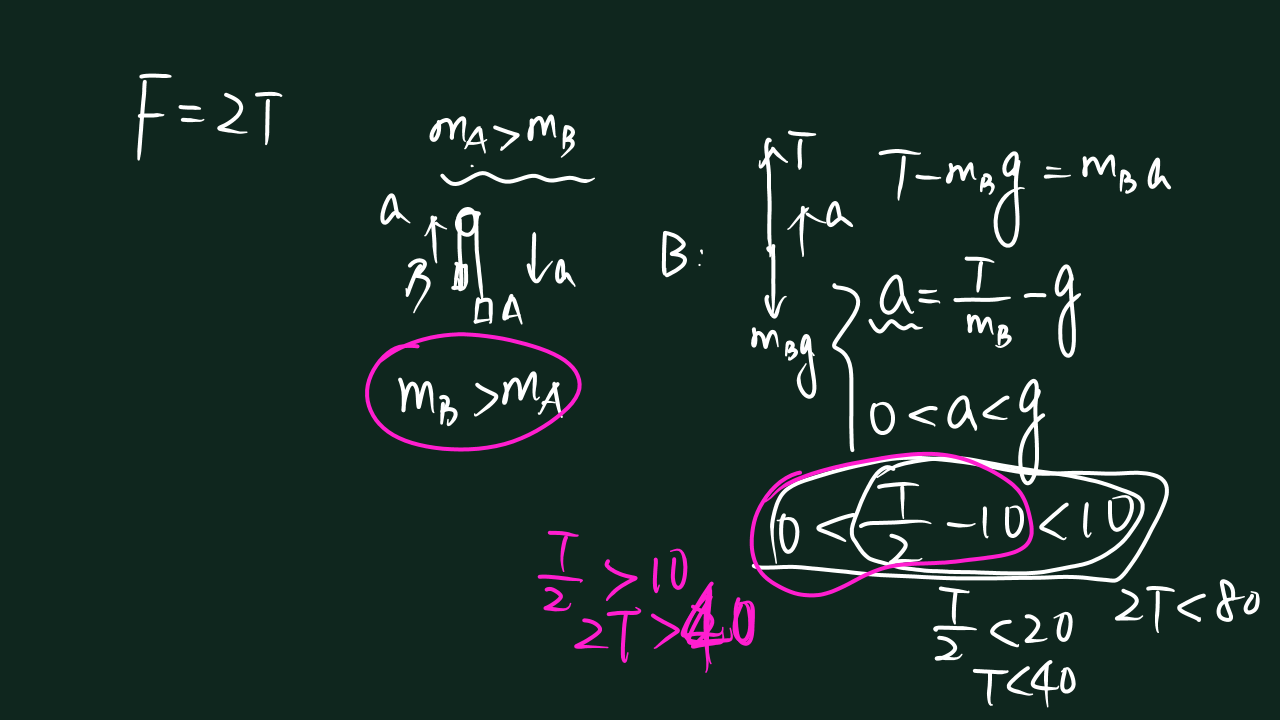 F=2T
m_A>m_B
a
B
a
A
m_B>m_A
B:
T
a
m_Bg
T-m_Bg=m_Ba
a=T/m_B-g
0<a<g
0<T/2-10<10
T/2>10
2T>40
T/2<20
T<40
2T<80